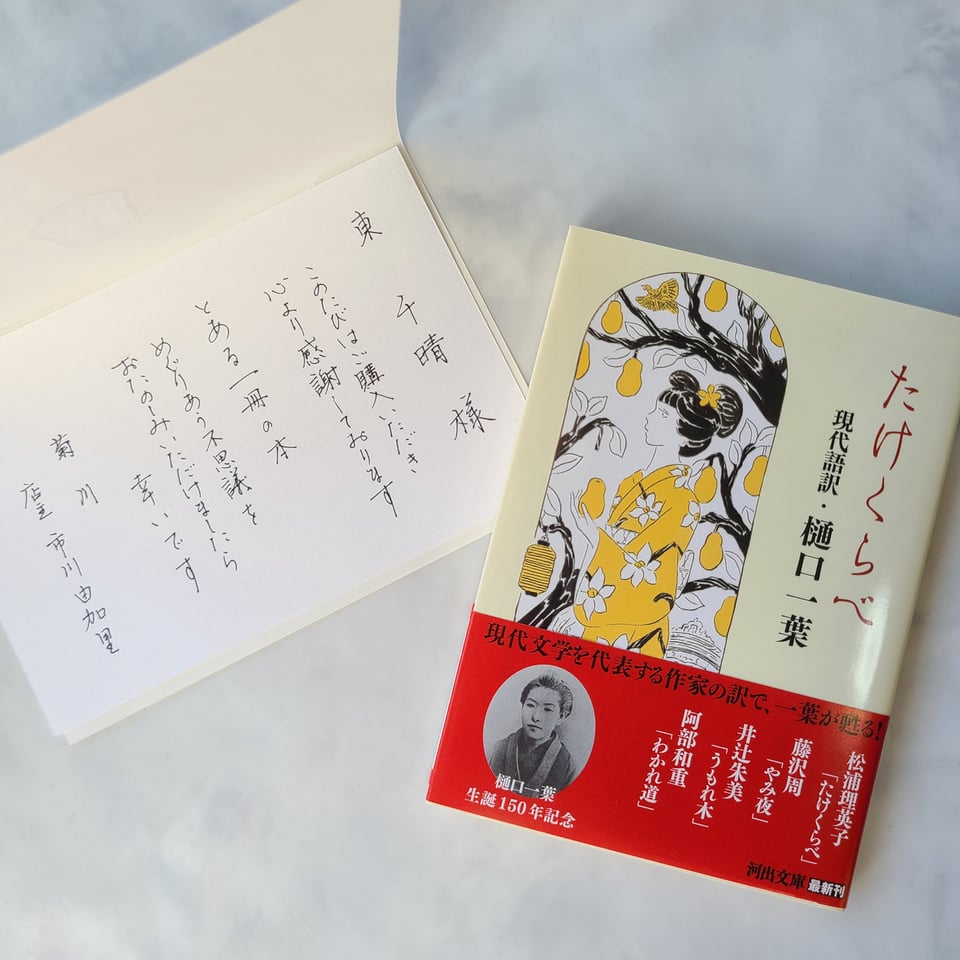 東 千晴 様
このたびはご購入いただき
心より感謝しております
とある一冊の本
めぐりあう不思議を
おたのしみいただけましたら
幸いです
菊川
店主 市川由加里
たけくらべ
現代語訳・樋口一葉
現代文学を代表する作家の訳で、一葉が甦る!
松浦理英子
「たけくらべ」
藤沢周
「やみ夜」
井辻朱美
「うもれ木」
阿部和重
「わかれ道」
樋口一葉
生誕150年記念
河出文庫 最新刊